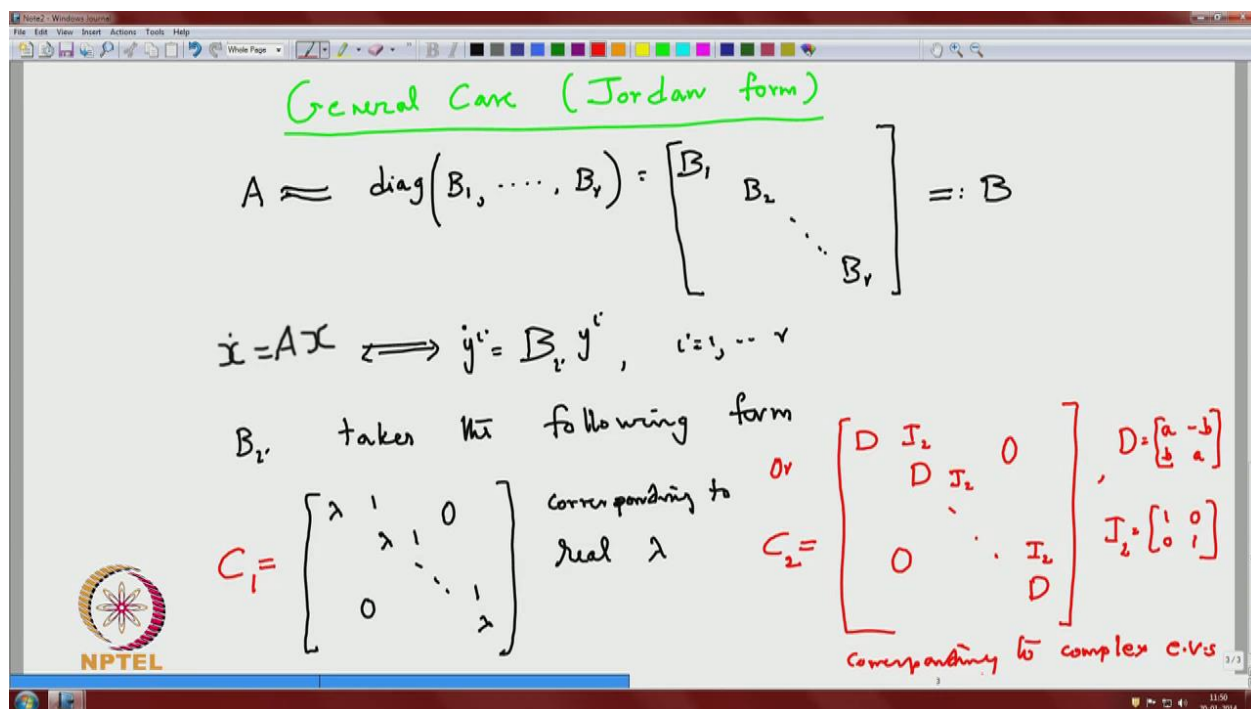 Note2 - Windows Journal
File Edit View Insert Actions Tools Help
Whole Page
B I
General Case (Jordan form)
A ≈ diag(B₁, ...., Bᵣ) = [B₁ B₂ ⋱ Bᵣ] =: B
ẋ = Ax ⟺ ẏⁱ = Bᵢ yⁱ, i=1, .. r
Bᵢ takes the following form
C₁ = [λ 1 0 λ 1 ⋱ 1 0 λ] corresponding to real λ
Or C₂ = [D I₂ 0 D I₂ ⋱ I₂ 0 D], D = [a -b b a]
I₂ = [1 0 0 1]
corresponding to complex e.v.s
NPTEL
3/3
3
11:50
20-01-2014